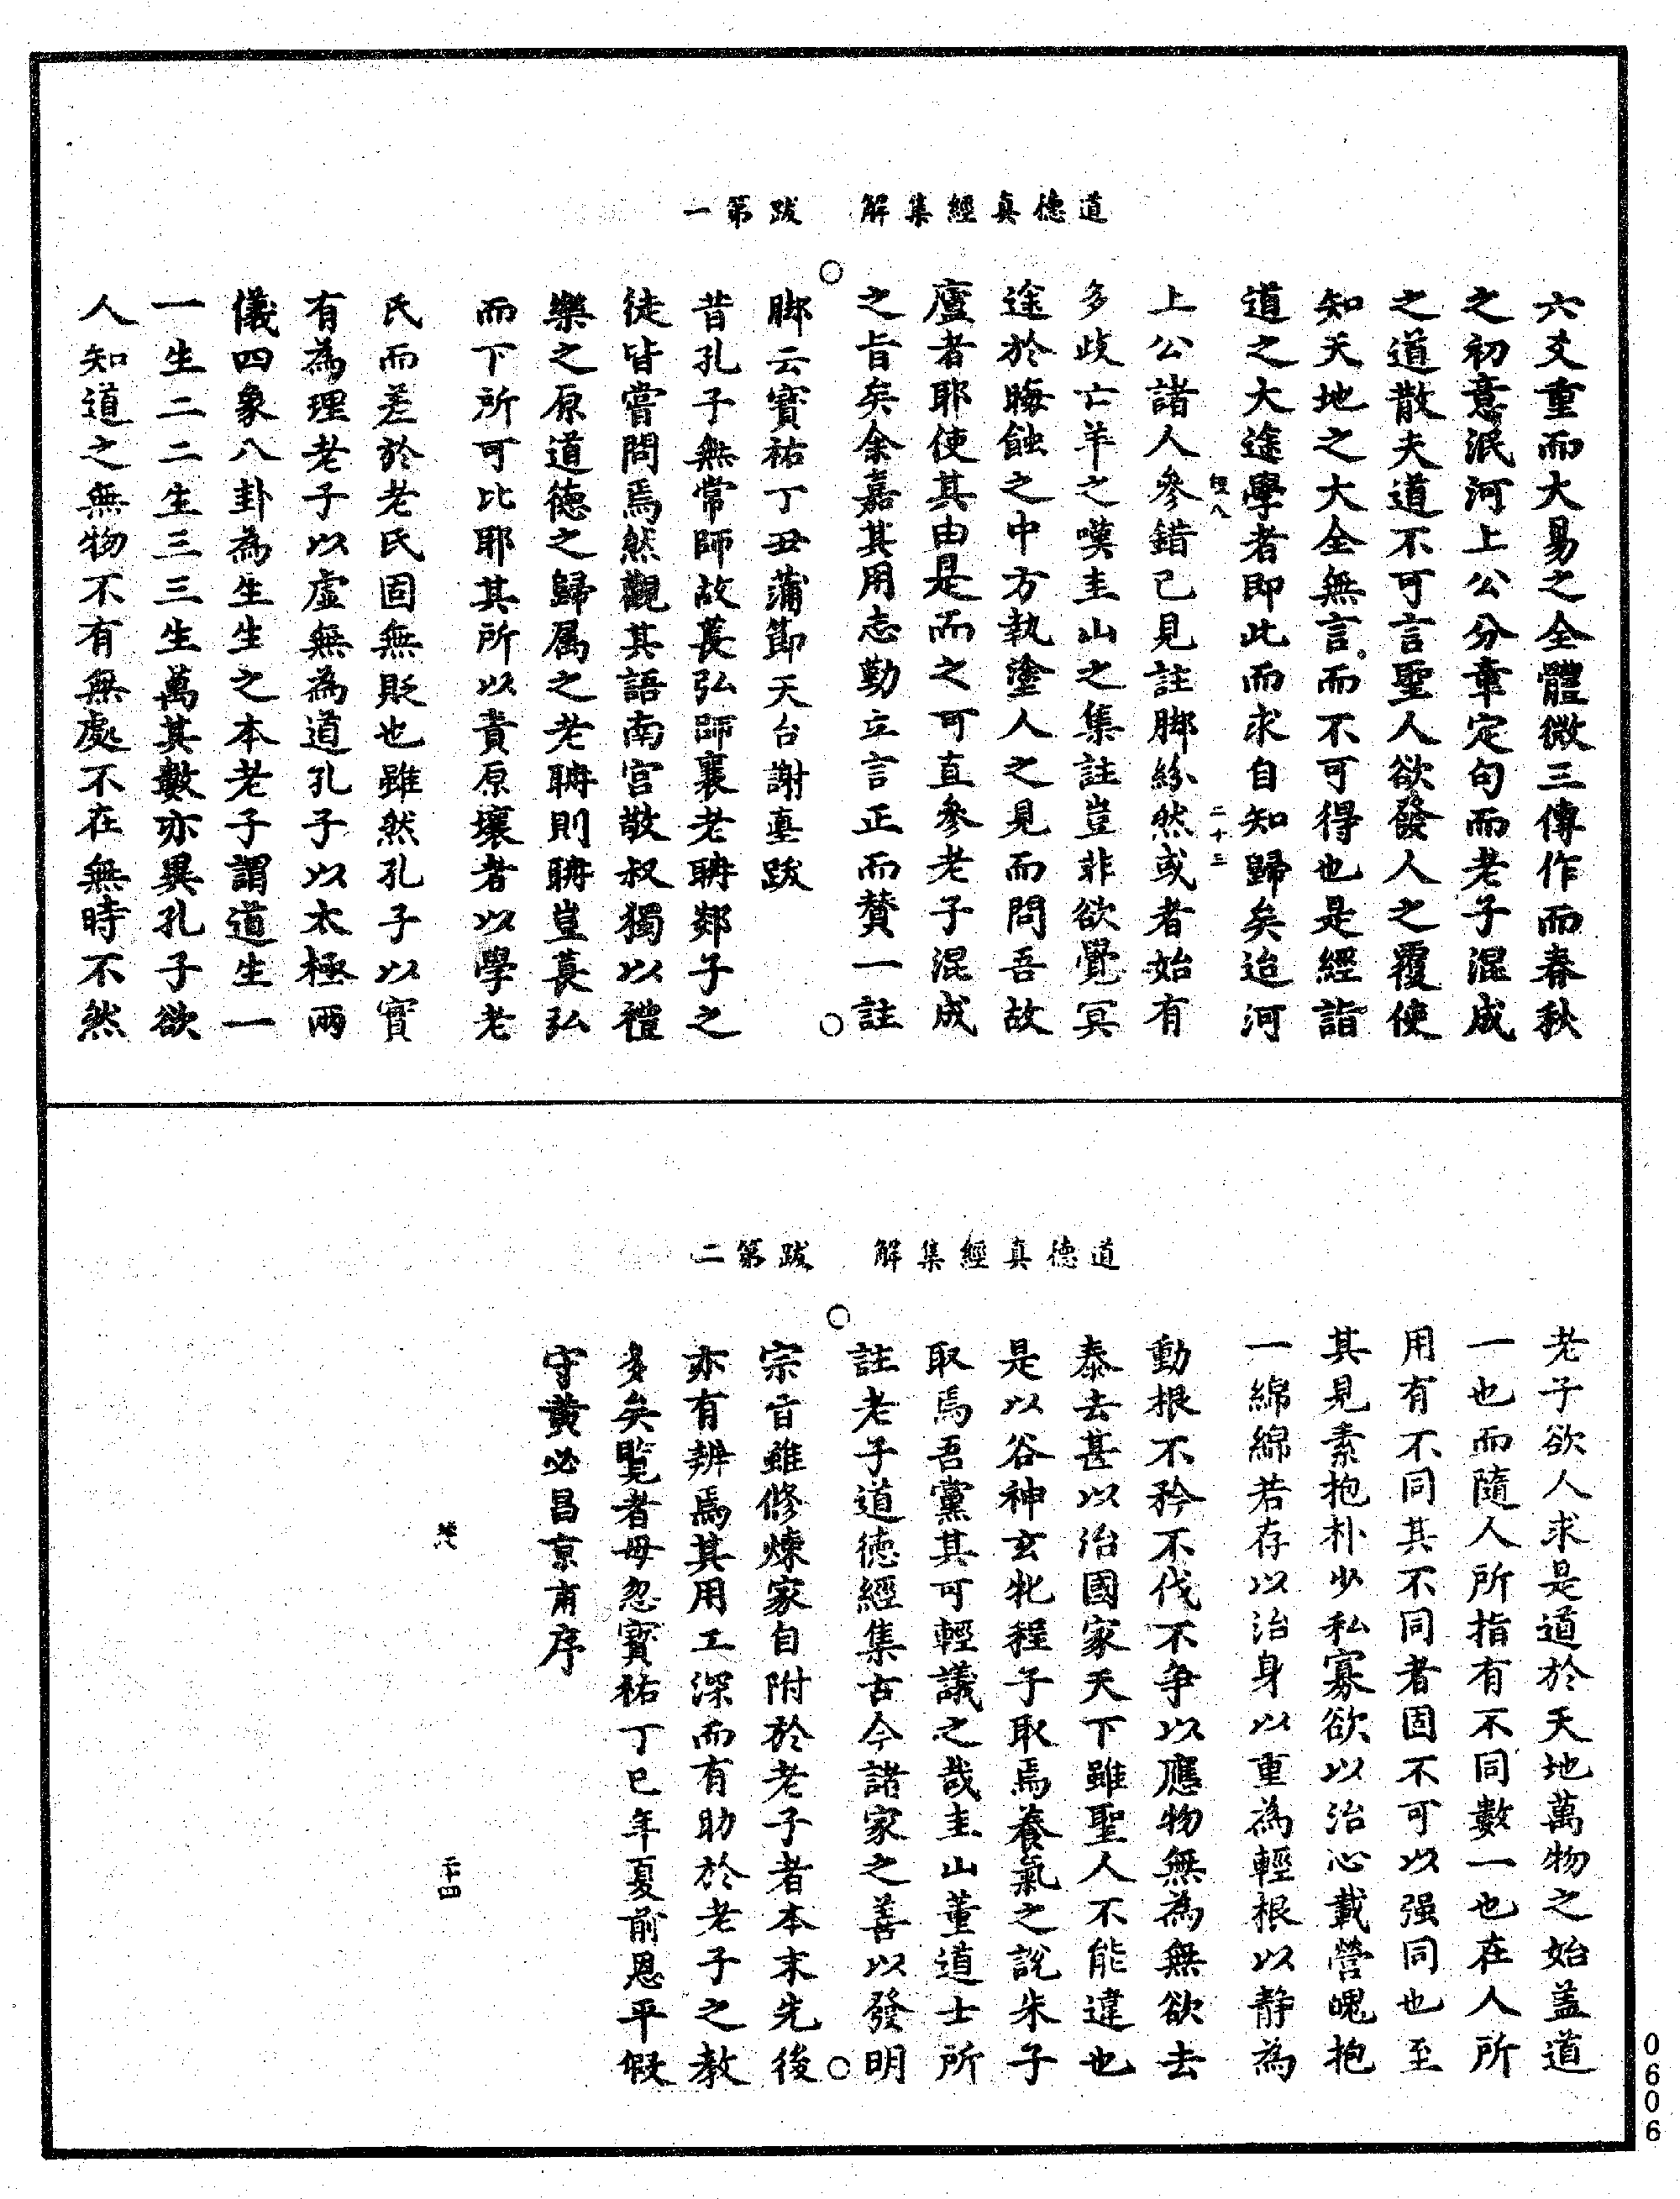 道德真經集解　跋第一
六爻重而大易之全體微三傳作而春秋
之初意泯河上公分章定句而老子混成
之道散夫道不可言聖人欲發人之覆使
知天地之大全無言而不可得也是經詣
道之大途學者即此而求自知歸矣迨河
二十三
上公諸人參錯已見註脚紛然或者始有
多歧亡羊之嘆圭山之集註豈非欲覺冥
途於晦蝕之中方執塗人之見而問吾故
廬者耶使其由是而之可直參老子混成
之旨矣余嘉其用志勤立言正而贅一註
脚云寶祐丁丑蒲節天台謝𡐛跋
昔孔子無常師故萇弘師襄老聃郯子之
徒皆嘗問焉然觀其語南宮敬叔獨以禮
樂之原道德之歸属之老聃則聃豈萇弘
而下所可比耶其所以責原壤者以學老
氏而差於老氏固無貶也雖然孔子以實
有為理老子以虛無為道孔子以太極兩
儀四象八卦為生生之本老子謂道生一
一生二二生三三生萬其數亦異孔子欲
人知道之無物不有無處不在無時不然
道德真經集解　跋第二
老子欲人求是道於天地萬物之始盖道
一也而隨人所指有不同數一也在人所
用有不同其不同者固不可以强同也至
其見素抱朴少私寡欲以治心載營魄抱
一綿綿若存以治身以重為輕根以静為
動根不矜不伐不争以應物無為無欲去
泰去甚以治國家天下雖聖人不能違也
是以谷神玄牝程子取焉養氣之說朱子
取焉吾黨其可輕議之哉圭山董道士所
註老子道德經集古今諸家之善以發明
宗旨雖修煉家自附於老子者本末先後
亦有辨焉其用工深而有助於老子之教
多矣覧者毋忽寶祐丁巳年夏前恩平假
守黄必昌京甫序
二十四
0606